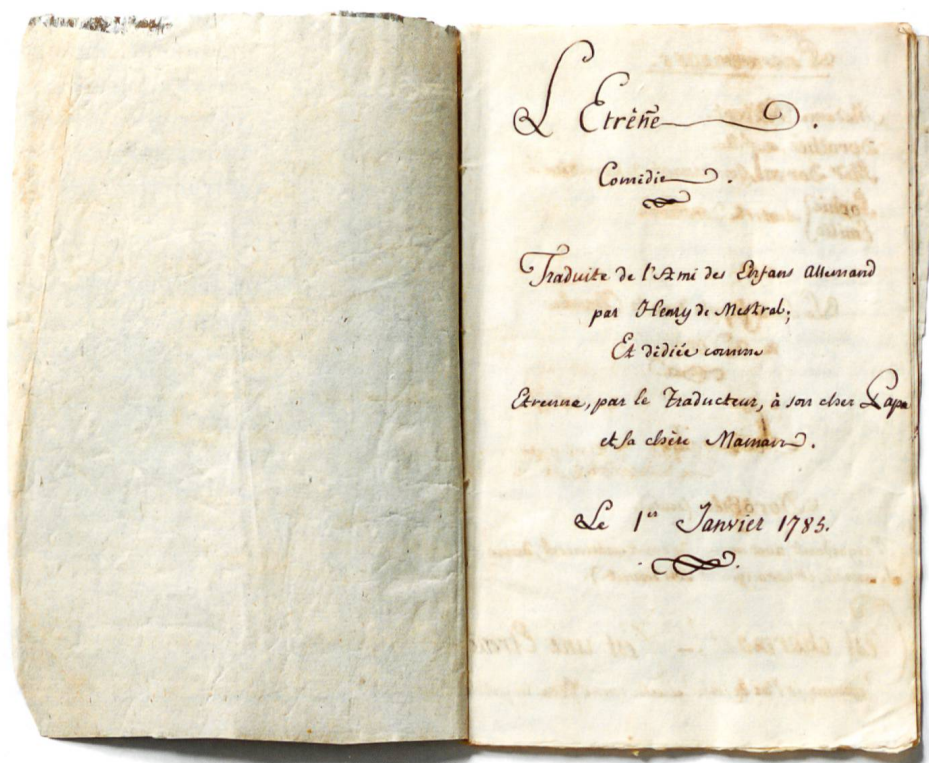 L'Etrēñe.
Comédie.
Traduite de l'Ami des Enfans Allemand
par Henry de Mestral;
Et dédiée comme
Etrenne, par le Traducteur, à son cher Papa
et sa chère Maman.
Le 1er Janvier 1785.